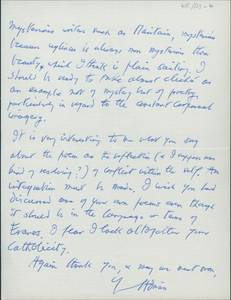 mysterious writers such as Maritain, mysterious
because ugliness is always more mysterious than
beauty, which I think is plain sailing. I
should be ready to take almost
an example not of mystery but of poetry,
particularly in regard to the constant corporeal
imagery.
It is very interesting to me what you say
about the poem as the reflection (& I suppose some
kind of resolving?) of conflict within the self. An
integration must be made. I wish you had
discussed one of your own poems even though
it should be in the language or terms of
I fear I lack altogether your
Catholicity.
Again thank you, & may we meet soon,